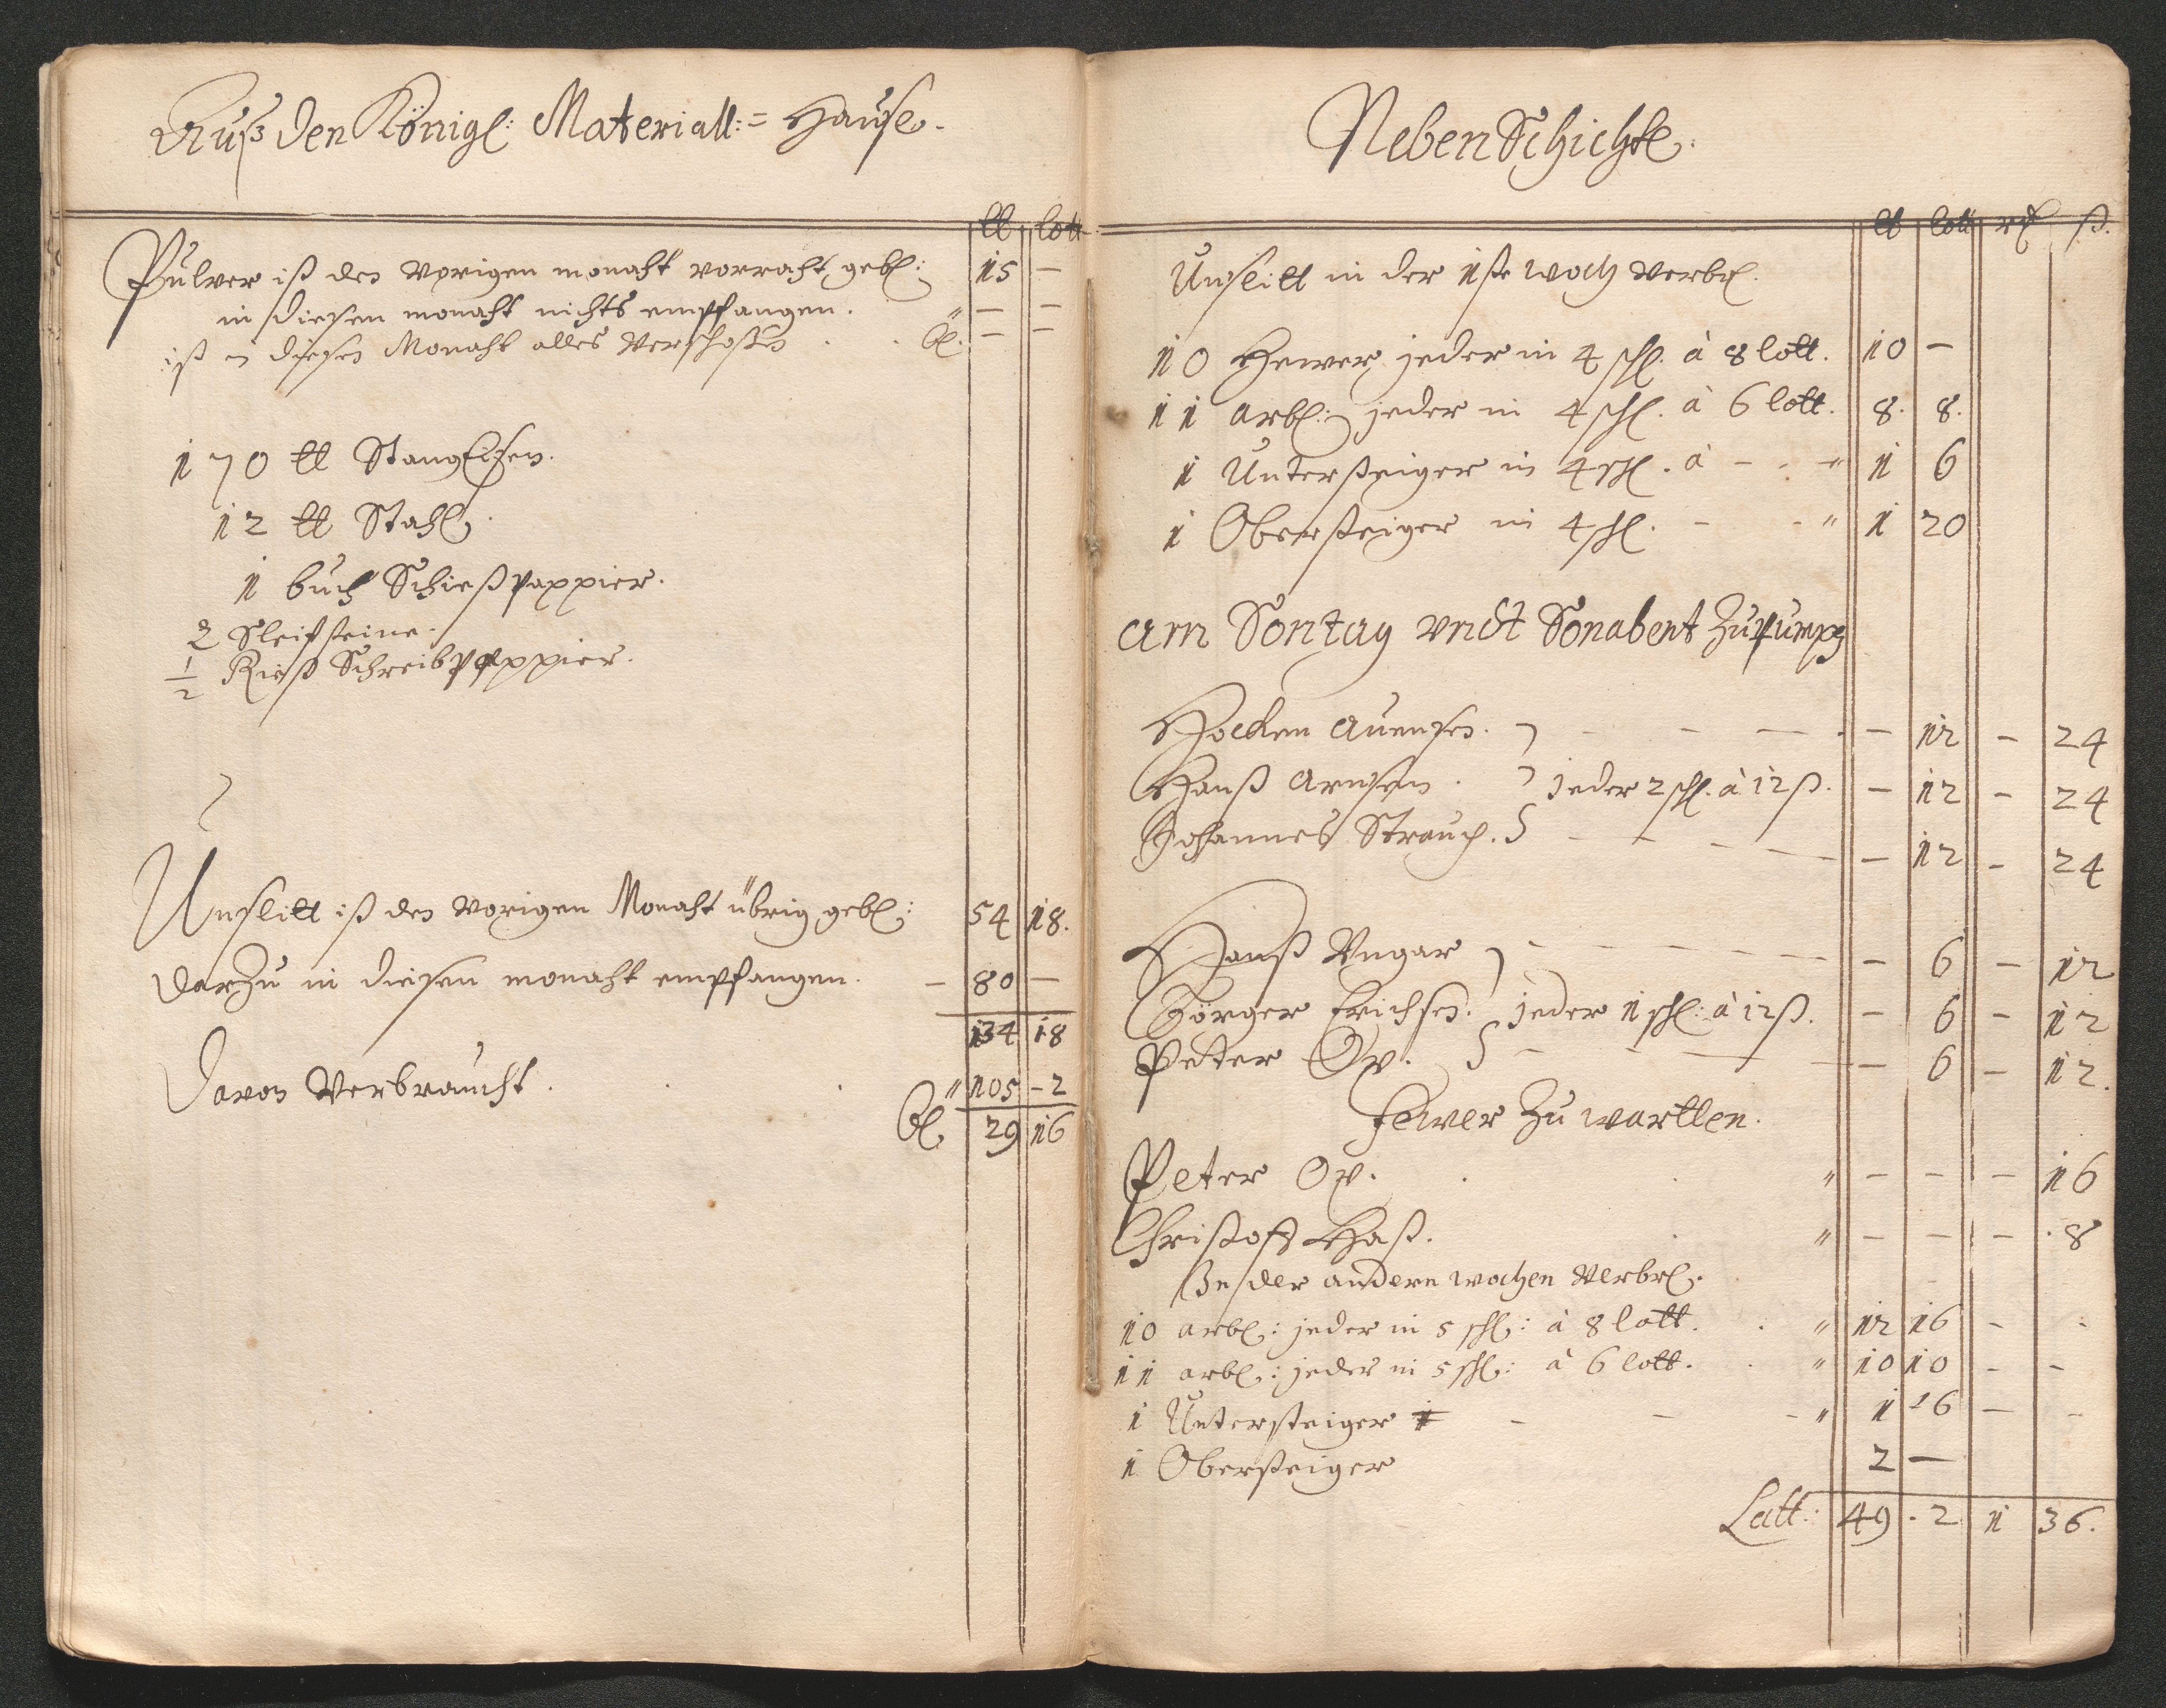 Auß den Königl: Materiall:= Hause.
℔ lott
Pulver ist den vorigen monaht vorraht gebl: 15 —
in diesen monaht nichts empfangen. " — —
ist in diesen Monaht alles verschoßen . . Bl. — —
170 ℔ Stang Eisen.
12 ℔ Stahl.
1 buch Schießpappier.
2 Sleifsteine.
1/2 Rieß Schreibpappier.
Unslitt ist den vorigen Monaht übrig gebl: 54 18.
darzu in diesen monaht empfangen. — 80 —
134 18
Davon verbraucht. . . " 105 - 2
Bl. 29 16
NebenSchichte.
℔ lott rd ß.
Unslitt in der 1ste woch verbr.
10 Hewer jeder in 4 schl. à 8 lott. 10 —
11 arbl: jeder in 4 schl. à 6 lott. 8. 8.
1 Untersteiger in 4 schl. à - . - " 1 6
1 Obersteiger in 4 schl. - - " 1 20
am Sontag vndt Sonabent Zu pumpen
Hocken Auensen. } - - — . — 12 — 24
Hanß Arnsen. } jeder 2 schl. à 12 ß. — 12 — 24
Johannes Strauch. } - - - — — 12 — 24
Hanß Vngar } - - - - — — 6 — 12
Jörger Erichsen. } jeder 1 schl: à 12 ß. — 6 — 12
Peter Ox. } - - — — — 6 — 12.
Fewer Zu wartten.
Peter Ox. . . " — — — 16
Christoff Haß. . " — — — . 8
In der andern wochen verbr.
10 arbl: jeder in 5 schl: à 8 lott. . " 12 16 - -
11 arbl: jeder in 5 schl: à 6 lott. . " 10 10 - -
1 Untersteiger - - - " 1 16 — -
1 Obersteiger 2 —
Latt: 49 . 2 1 36.